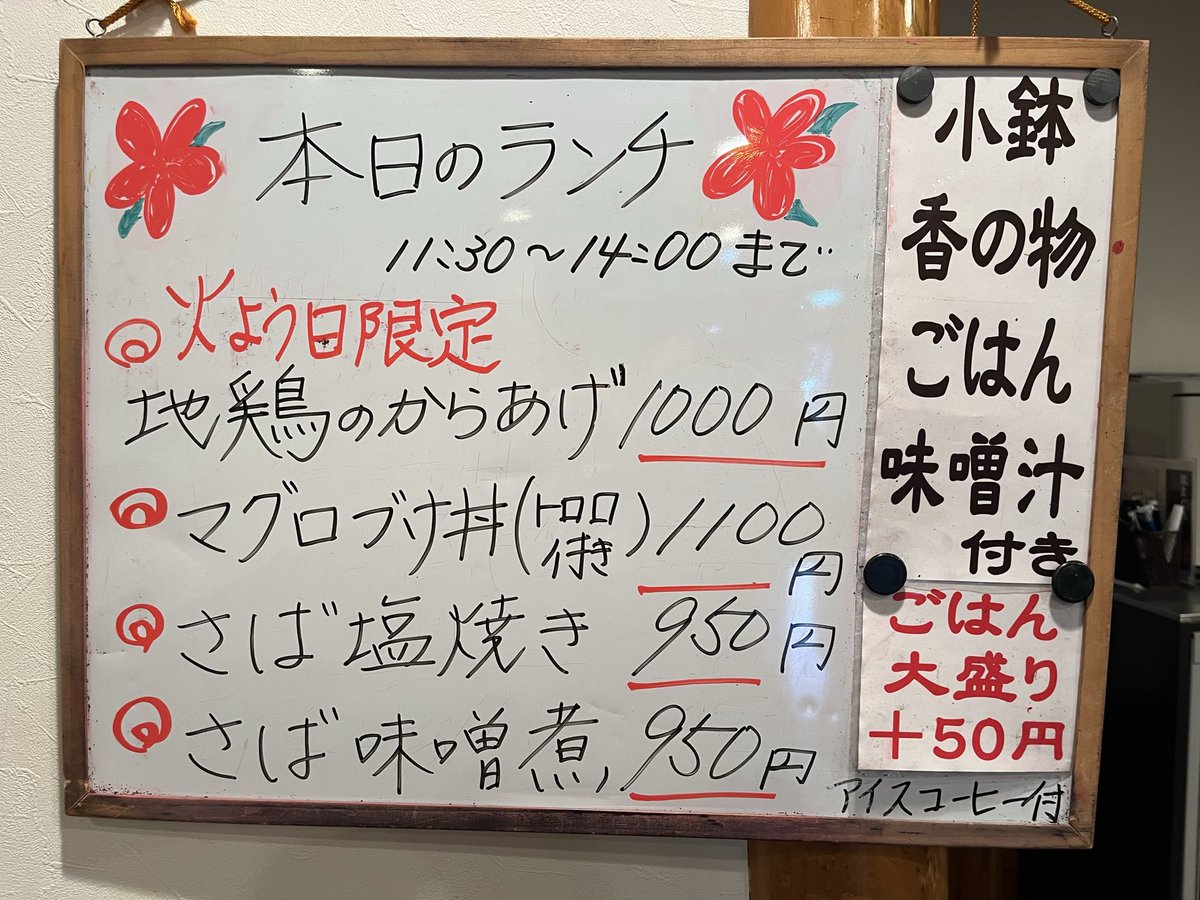 本日のランチ
11:30～14:00まで
火よう日限定
地鶏のからあげ 1000円
マグロづけ丼(トロロ付き) 1100円
さば塩焼き 950円
さば味噌煮 950円
小鉢
香の物
ごはん
味噌汁
付き
ごはん
大盛り
＋50円
アイスコーヒー付